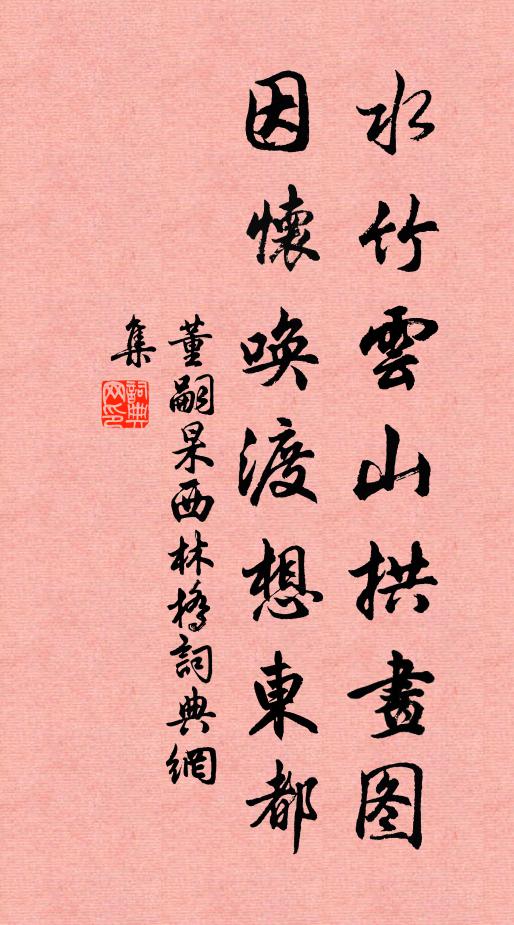 水竹雲山拱畫图
因懷唤渡想東都
董嗣杲西林橋詞典網
集
詞典
网印